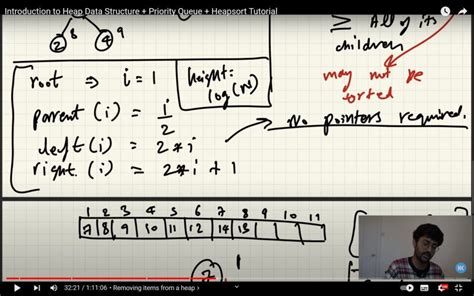 Introduction to Heap Data Structure + Priority Queue + Heapsort Tutorial
8
9
2
4
≥ All of its
children
root ⇒ i = 1
height:
log(n)
may not be
sorted
parent (i) = i/2
left (i) = 2*i
No pointers required.
right (i) = 2*i + 1
1 2 3 4 5 6 7 8 9 10 11
7 8 9 10 11 12 14 13
7
1
32:21 / 1:11:06 • Removing items from a heap ›